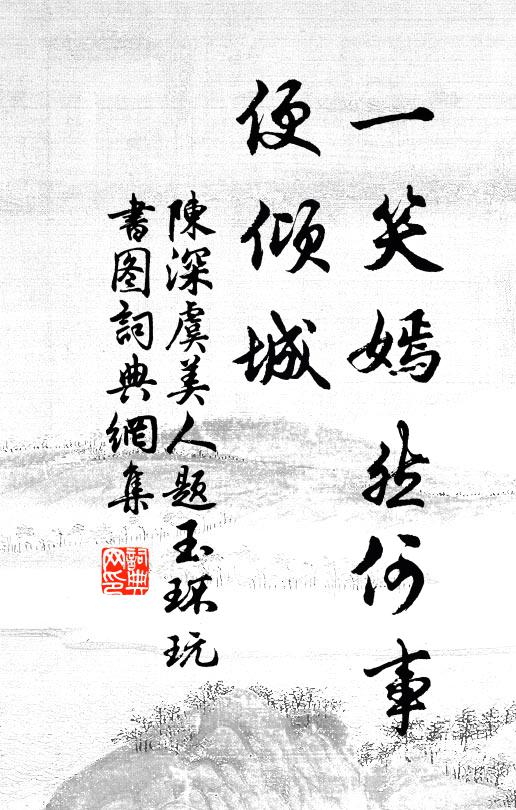 一笑嫣然何事
便倾城
陳深虞美人题玉环玩
書图詞典網集
詞典
网印